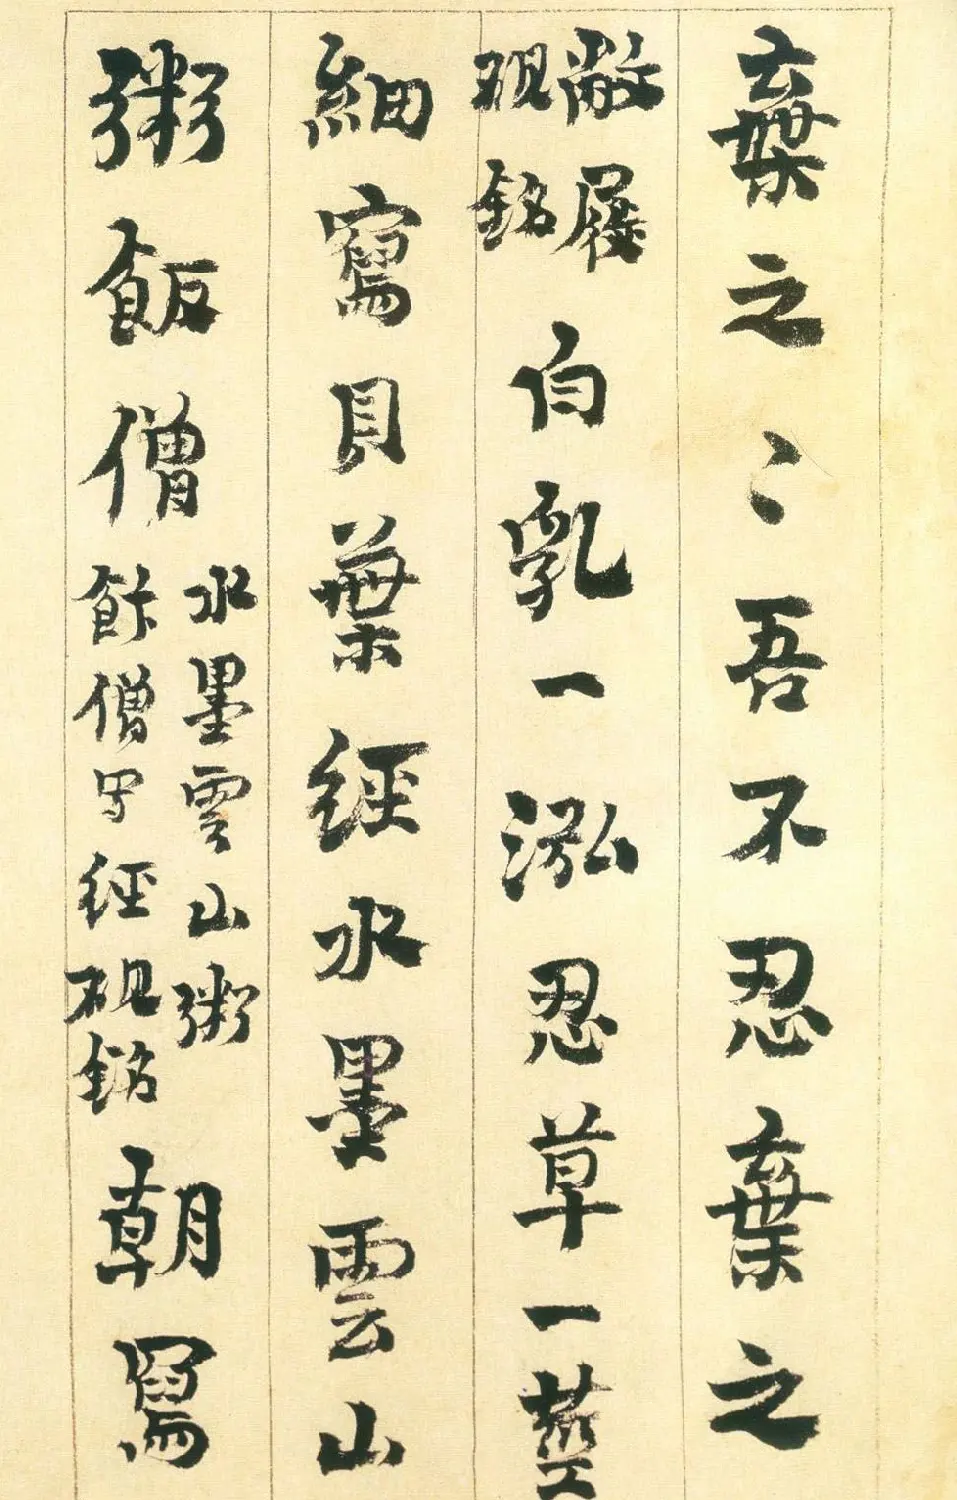 棄之〻吾不忍棄之
敝屐
硯銘
白乳一泓忍草一莖
細寫貝葉經水墨雲山
粥飯僧
水墨雲山粥
飰僧写經硯銘
朝冩